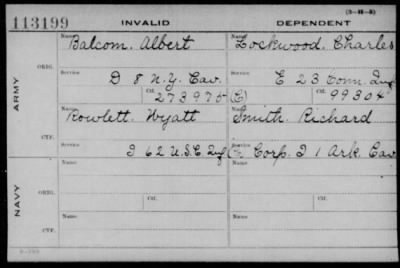 (3-H-8)
113199 INVALID DEPENDENT
Name Name
Balcom, Albert Lockwood, Charles
ORIG. Service Service
D 8 N.Y. Cav. E 23 Conn. Inf
Ctf. Ctf.
273975 (E) 99304
ARMY
Name Name
Rowlett, Wyatt Smith, Richard
CTF. Service Service
I 62 U.S.C. Inf Corp. I 1 Ark. Cav
Name Ctf. Name Ctf.
ORIG.
NAVY
Name Name
CTF.